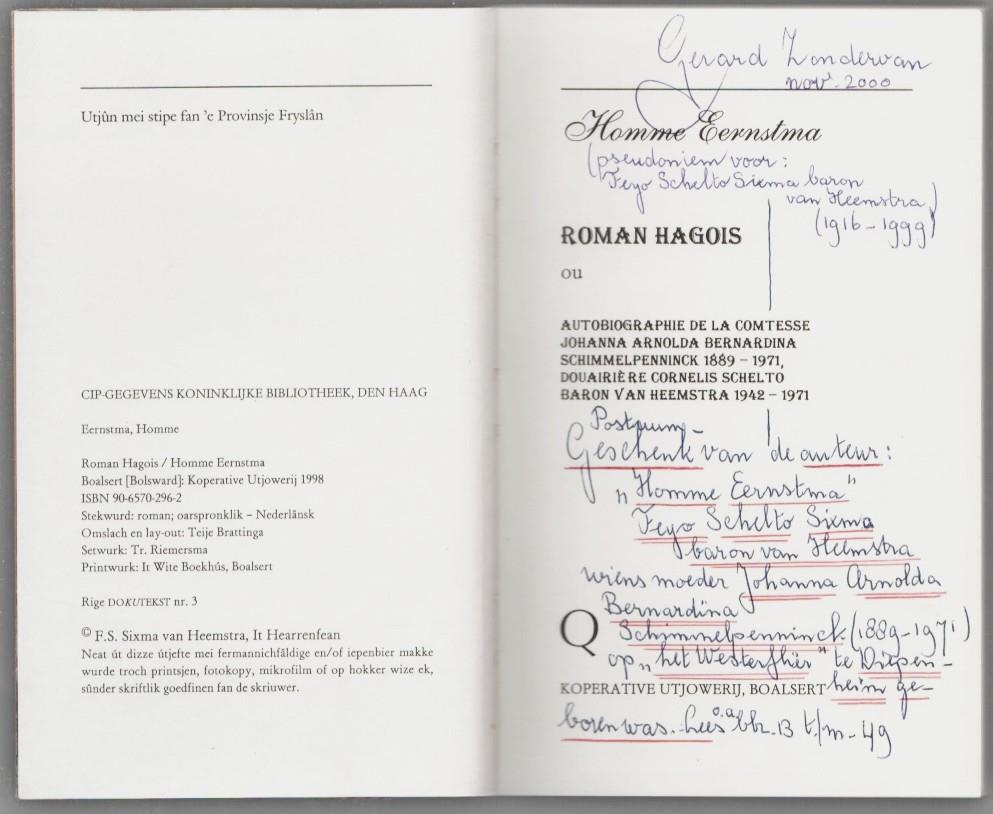 Utjûn mei stipe fan 'e Provinsje Fryslân
CIP-GEGEVENS KONINKLIJKE BIBLIOTHEEK, DEN HAAG
Eernstma, Homme
Roman Hagois / Homme Eernstma
Boalsert [Bolsward]: Koperative Utjowerij 1998
ISBN 90-6570-296-2
Stekwurd: roman; oarspronklik – Nederlânsk
Omslach en lay-out: Teije Brattinga
Setwurk: Tr. Riemersma
Printwurk: It Wite Boekhús, Boalsert
Rige DOKUTEKST nr. 3
© F.S. Sixma van Heemstra, It Hearrenfean
Neat út dizze útjefte mei fermannichfâldige en/of iepenbier makke
wurde troch printsjen, fotokopy, mikrofilm of op hokker wize ek,
sûnder skriftlik goedfinen fan de skriuwer.
Gerard Zondervan
nov. 2000
Homme Eernstma
(pseudoniem voor:
Feyo Schelto Sixma baron
van Heemstra)
(1916-1999)
ROMAN HAGOIS
ou
AUTOBIOGRAPHIE DE LA COMTESSE
JOHANNA ARNOLDA BERNARDINA
SCHIMMELPENNINCK 1889 – 1971,
DOUAIRIÈRE CORNELIS SCHELTO
BARON VAN HEEMSTRA 1942 – 1971
Postuum-
Geschenk van de auteur:
„Homme Eernstma"
Feyo Schelto Sixma
baron van Heemstra
wiens moeder Johanna Arnolda
Bernardina
Schimmelpenninck (1889-1971)
op „het Westerflier" te Diepen-
KOPERATIVE UTJOWERIJ, BOALSERT heim ge-
boren was. Lees o.a. blz. 13 t/m - 49